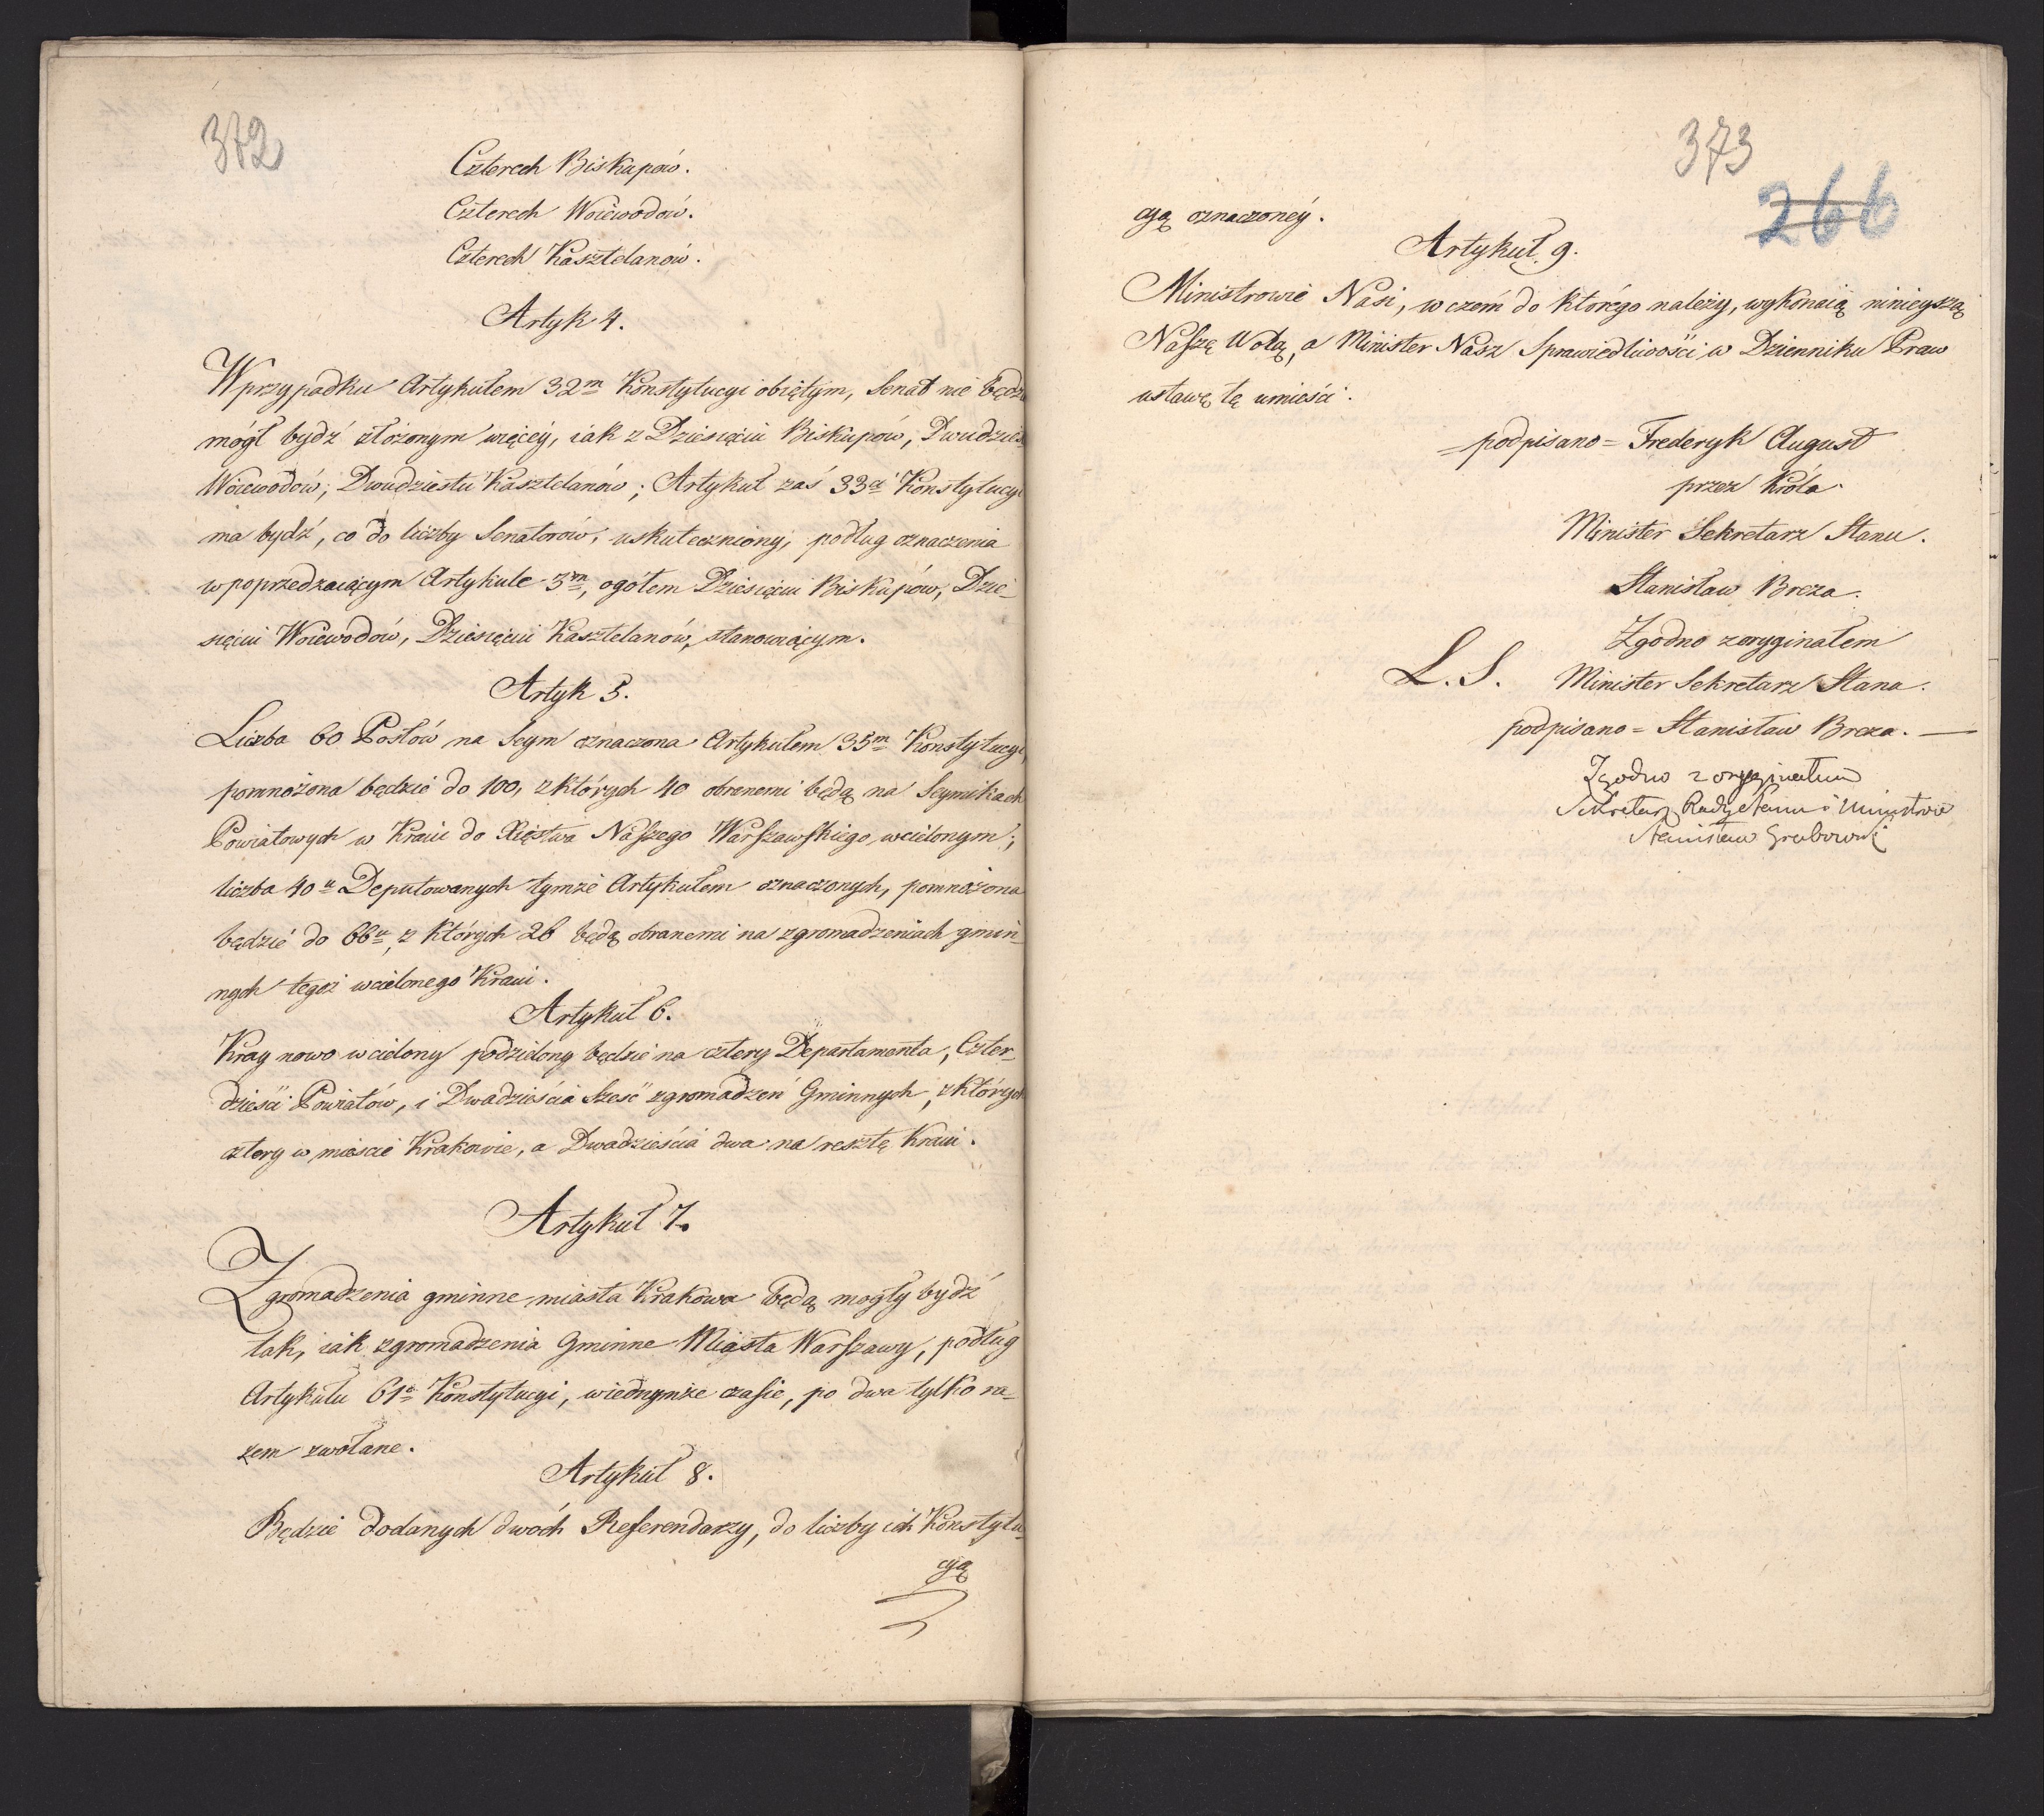 372
Czterech Biskupów.
Czterech Woiewodów.
Czterech Kasztelanów.
Artyk 4.
W przypadku Artykułem 32m Konstytucyi obiętym, Senat nie będzie
mógł bydź złożonym więcéy, iak z Dziesięciu Biskupów, Dwudzies
Woiewodów, Dwudziestu Kasztelanów; Artykuł zaś 33ci Konstytucyi
ma bydź, co do liczby Senatorów, uskuteczniony, podług oznaczenia
w poprzedzaiącym Artykule 3m, ogółem Dziesięciu Biskupów, Dzie-
sięciu Woiewodów, Dziesięciu Kasztelanów, stanowiącym.
Artyk 5.
Liczba 60 Posłów na Seym oznaczona Artykułem 35m Konstytucyi,
pomnożona będzie do 100, z których 40 obranemi będą na Seymikach
Powiatowych w Kraiu do Xięstwa Naszego Warszawskiego wcielonym;
liczba 40u Deputowanych tymże Artykułem oznaczonych, pomnożona
będzie do 66u, z których 26 będą obranemi na zgromadzeniach gmin-
nych tegoż wcielonego Kraiu.
Artykuł 6.
Kray nowo wcielony podzielony będzie na cztery Departamenta, Czter-
dzieści Powiatów, i Dwadzieścia Sześć zgromadzeń Gminnych, z których
cztery w mieście Krakowie, a Dwadzieścia dwa na resztę Kraiu.
Artykuł 7.
Zgromadzenia gminne miasta Krakowa będą mogły bydź
tak, iak zgromadzenia Gminne Miasta Warszawy, podług
Artykułu 61o Konstytucyi, w iednymże czasie, po dwa tylko ra-
zem zwołane.
Artykuł 8.
Będzie dodanych dwóch Referendarzy, do liczby ich Konstytu-
cyą
373
266
cyą oznaczonéy.
Artykuł 9.
Ministrowie Nasi, w czém do którego należy, wykonaią ninieyszą
Naszę Wolą, a Minister Nasz Sprawiedliwości w Dzienniku Praw
ustawę tę umieści.
=podpisano= Frederyk August
przez Króla
Minister Sekretarz Stanu.
Stanisław Breza.
Zgodno z oryginałem
L. S. Minister Sekretarz Stanu.
podpisano = Stanisław Breza. —
Zgodno z oryginałem
Sekretarz Rady Stanu i Ministrów
Stanisław Grabowski